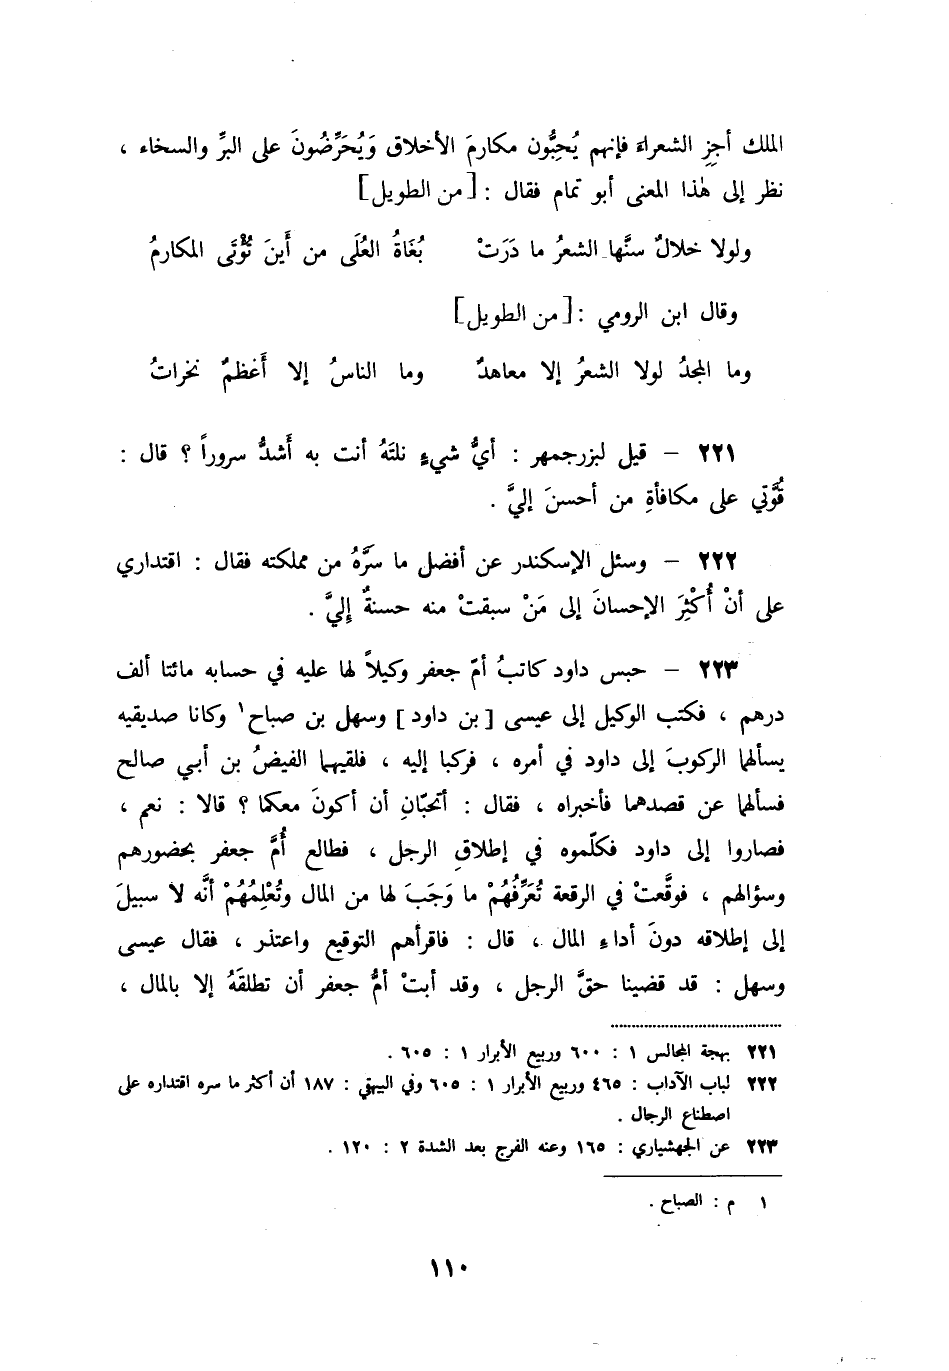 الملك أجزِ الشعراءَ فإنهم يُحِبُّون مكارمَ الأخلاق وَيُحَرِّضُونَ على البرِّ والسخاء ،
نظر إلى هٰذا المعنى أبو تمام فقال : [من الطويل]
ولولا خلالٌ سنَّها الشعرُ ما دَرَتْ بُغَاةُ العُلَى من أَينَ تُؤْتَى المكارمُ
وقال ابن الرومي : [من الطويل]
وما المجدُ لولا الشعرُ إلا معاهدٌ وما الناسُ إلا أَعْظمٌ نخراتُ
٢٢١ – قيل لبزرجمهر : أيُّ شيءٍ نلتَهُ أنت به أَشدُّ سروراً ؟ قال :
قُوَّتي على مكافأةِ من أحسنَ إليَّ .
٢٢٢ – وسئل الإسكندر عن أفضل ما سَرَّهُ من مملكته فقال : اقتداري
على أنْ أُكْثِرَ الإحسانَ إلى مَنْ سبقتْ منه حسنةٌ إليَّ .
٢٢٣ – حبس داود كاتبُ أمّ جعفر وكيلاً لها عليه في حسابه مائتا ألف
درهم ، فكتب الوكيل إلى عيسى [بن داود] وسهل بن صباح١ وكانا صديقيه
يسألهما الركوبَ إلى داود في أمره ، فركبا إليه ، فلقيهما الفيضُ بن أبي صالح
فسألهما عن قصدهما فأخبراه ، فقال : أتحبّانِ أن أكونَ معكما ؟ قالا : نعم ،
فصاروا إلى داود فكلّموه في إطلاقِ الرجل ، فطالع أُمَّ جعفر بحضورهم
وسؤالهم ، فوقَّعتْ في الرقعة تُعَرِّفُهُمْ ما وَجَبَ لها من المال وتُعْلِمُهُمْ أنَّه لا سبيلَ
إلى إطلاقه دونَ أداءِ المال ، قال : فاقرأهم التوقيع واعتذر ، فقال عيسى
وسهل : قد قضينا حقَّ الرجل ، وقد أبتْ أمُّ جعفر أن تطلقَهُ إلا بالمال ،
٢٢١ بهجة المجالس ١ : ٦٠٠ وربيع الأبرار ١ : ٦٠٥ .
٢٢٢ لباب الآداب : ٤٦٥ وربيع الأبرار ١ : ٦٠٥ وفي البيهقي : ١٨٧ أن أكثر ما سره اقتداره على
اصطناع الرجال .
٢٢٣ عن الجهشياري : ١٦٥ وعنه الفرج بعد الشدة ٢ : ١٢٠ .
١ م : الصباح .
١١٠